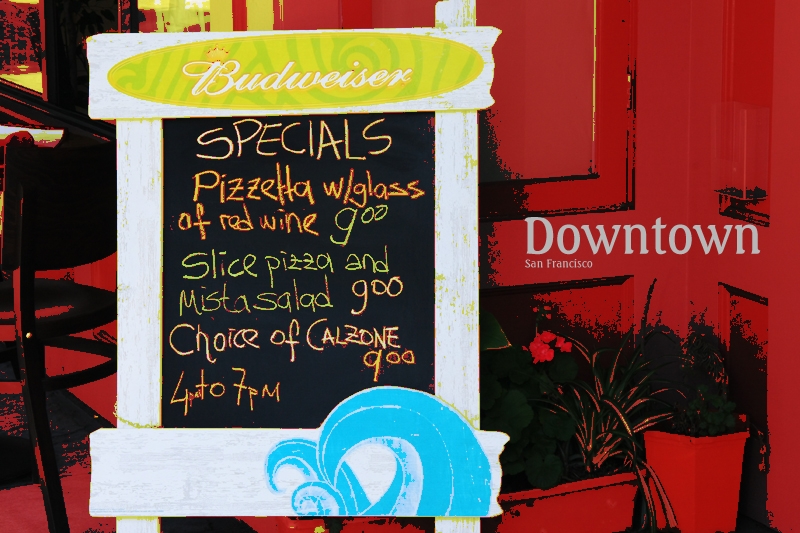 Budweiser
SPECIALS
Pizzetta w/glass
of red wine 9oo
Slice pizza and
Mista salad 9oo
Choice of CALZONE
9oo
4pm to 7pm
Downtown
San Francisco